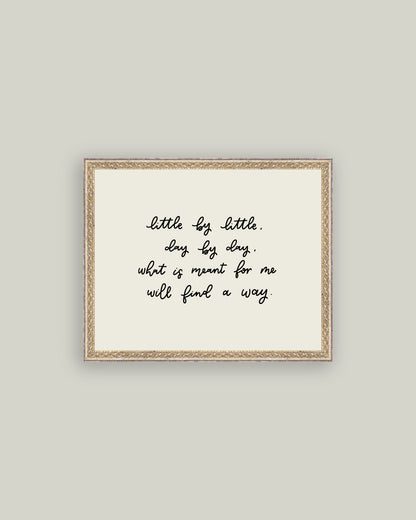 little by little,
day by day,
what is meant for me
will find a way.